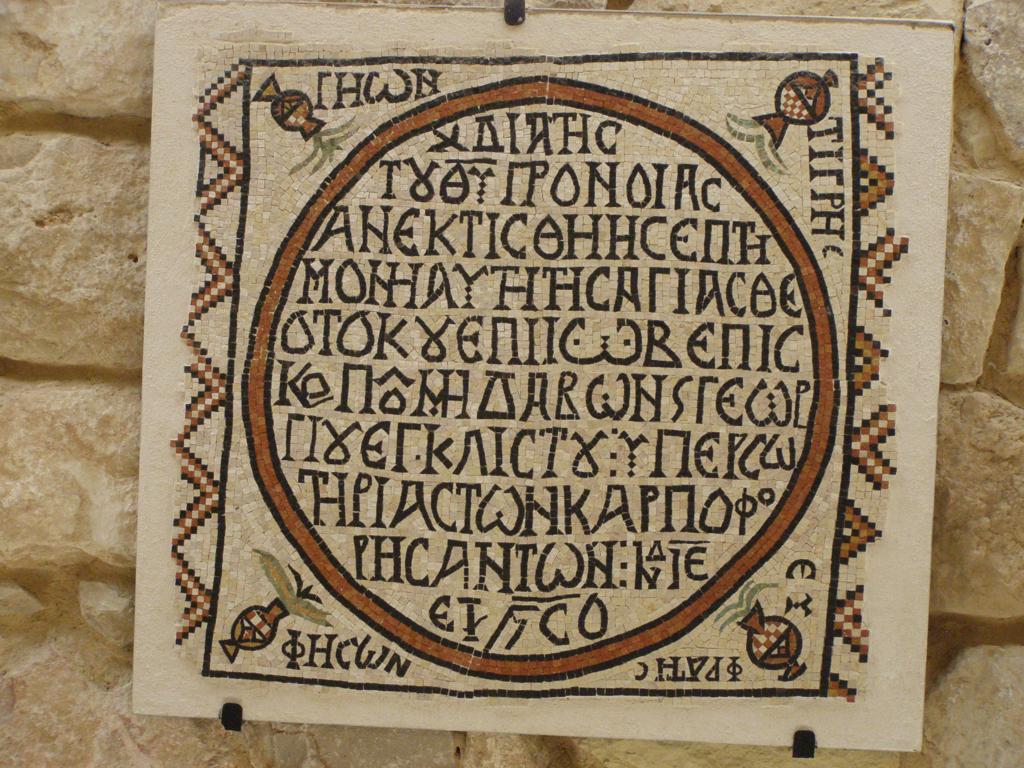 ΓΗΩΝ
ΤΙΓΡΗϹ
ΔΙΑΤΗϹ
ΤȢΘΥ ΠΡΟΝΟΙΑϹ
ΑΝΕΚΤΙϹΘΗΗϹΕΠΤΗ
ΜΟΝΗΑΥΤΗΤΗϹΑΓΙΑϹΘΕ
ΟΤΟΚȢΕΠΙΙϹ·Ω·ΒΕΠΙϹ
ΚΟΠΟΜΗΔΑΒΩΝϚΓΕΩΡ
ΓΙȢΕΓΚΛΙϹΤȢ:ΥΠΕΡϹΩ
ΤΗΡΙΑϹΤΩΝΚΑΡΠΟΦΟ
ΡΗϹΑΝΤΩΝ:ΙΝΔΙΕ
ΕΤ ϹΟ
ΦΗϹΩΝ
ΕΥ
ΦΡΑΤΗϹ